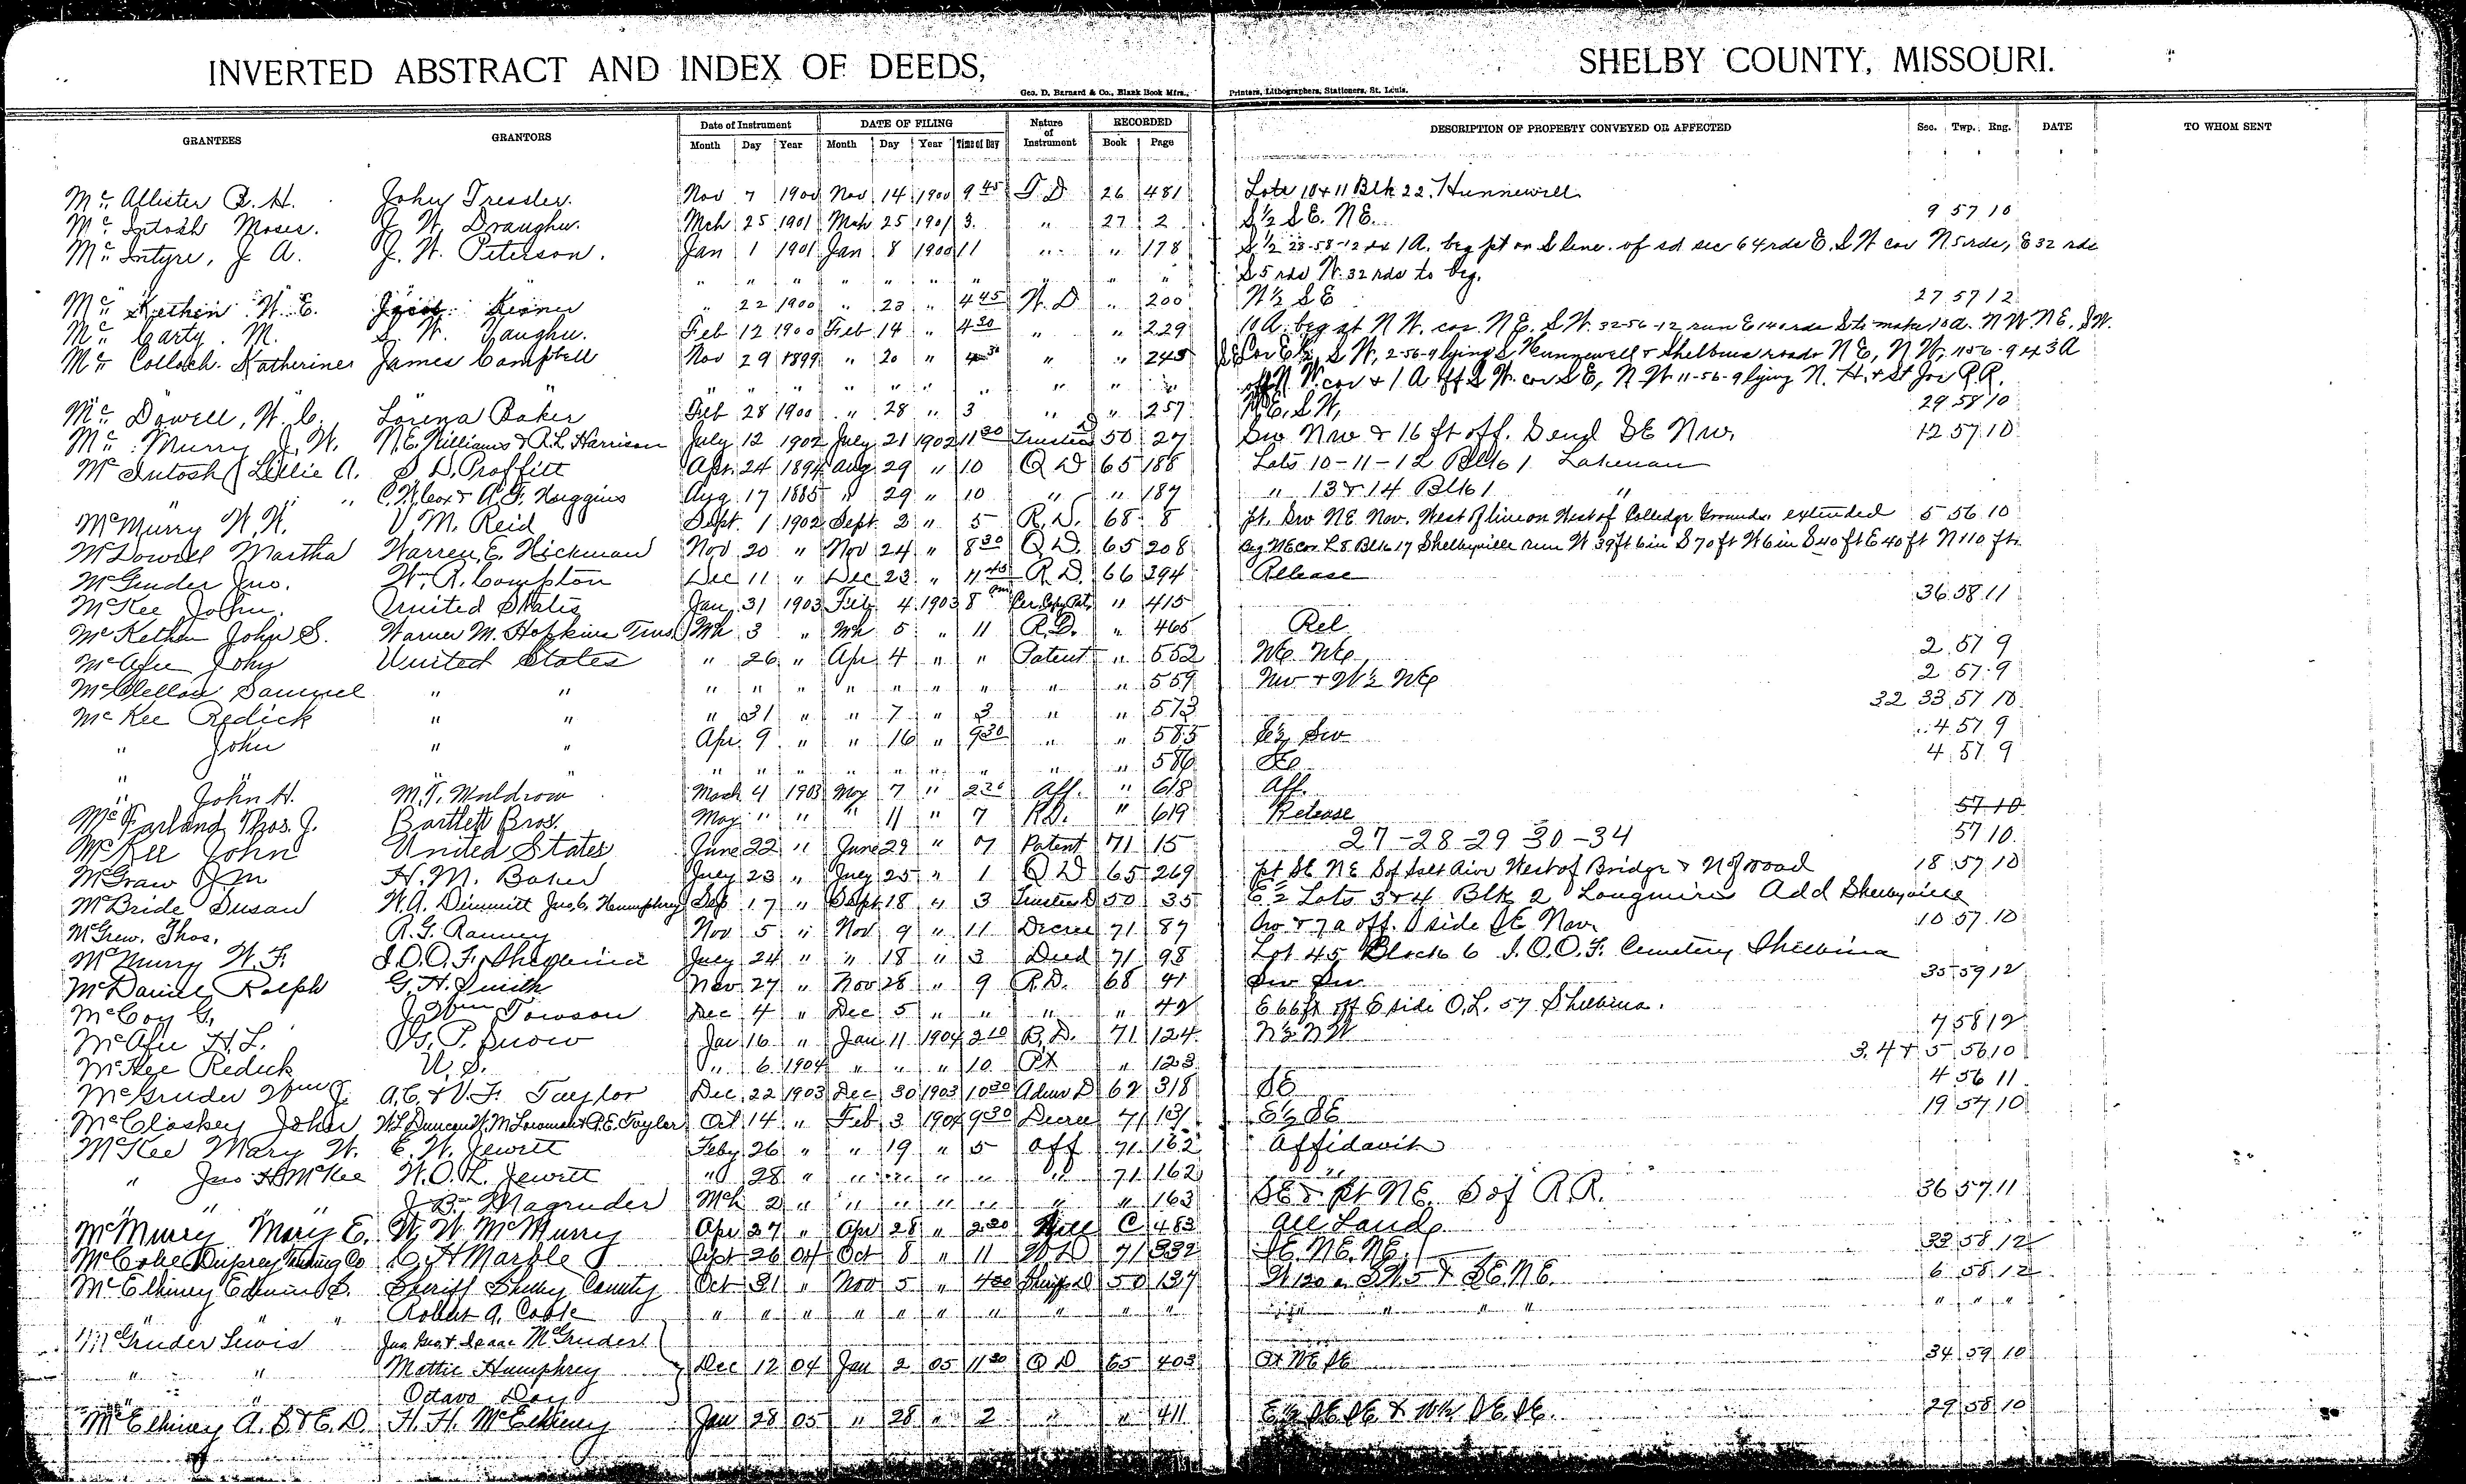 INVERTED ABSTRACT AND INDEX OF DEEDS, SHELBY COUNTY, MISSOURI.
Geo. D. Barnard & Co., Blank Book Mfrs., Printers, Lithographers, Stationers, St. Louis.
GRANTEES GRANTORS Date of Instrument DATE OF FILING Nature of Instrument RECORDED DESCRIPTION OF PROPERTY CONVEYED OR AFFECTED Sec. Twp. Rng. DATE TO WHOM SENT
Month Day Year Month Day Year Time of Day Book Page
Mc Allister R. H. John Tressler. Nov 7 1900 Nov 14 1900 9 45 T. D 26 481 Lots 10 & 11 Blk 22, Hunnewell
Mc Intosh Moses. J. W. Draughn. Mch 25 1901 Mch 25 1901 3. " 27 2 S½ S E. NE. 9 57 10
Mc Intyre, J A. J. W. Peterson. Jan 1 1901 Jan 8 1900 11 " " 178 S ½ 28-58-12 ex 1A. beg pt on S line. of sd sec 64 rds E. S W cor N 5 rds, E 32 rds
" " " " " " " " " " S 5 rds W. 32 rds to beg.
Mc W. E. " 22 1900 " 23 " 4 45 W. D " 200 N½ S E 27 57 12
Mc Carty. M. S. W. Vaughn. Feb 12 1900 Feb 14 " 4 30 " " 229 10 A. beg at N W. cor. N E. S W. 32-56-12 run E 140 rds S to make 10 a. N W N E. S W.
Mc Colloch. Katherine James Campbell Nov 29 1899 " 20 " 4 30 " " 245 E½, S W, 2-56-9 lying S Hunnewell & Shelbina roads N E, N W, 11 56-9 ex 3 A
" " " " " " " " " " off N W. cor & 1 A off S W. cor S E, N W 11-56-9 lying N. H. & St Joe R.R.
Mc Dowell, W. C. Lorena Baker Feb 28 1900 " 28 " 3 " " 257 N E, S W, 29 58 10
Mc Murry J. W. N. E. Williams & R. L. Harrison July 12 1902 July 21 1902 11 30 Trustees D 50 27 Sw Nw & 16 ft off. S end SE Nw. 12 57 10
Mc Intosh Lillie A. S. D. Proffitt Apr. 24 1894 Aug 29 " 10 Q D 65 186 Lots 10-11-12 Blk 1 Lakenan
" " C. Wilcox & A. F. Huggins Aug 17 1885 " 29 " 10 " " 187 " 13 & 14 Blk 1 "
McMurry W. W. V. M. Reid Sept. 1 1902 Sept. 2 " 5 R. D. 68 8 pt. Sw NE Nw. West of line on West of Colledge Grounds. extended 5 56 10
McDowell Martha Warren E. Hickman Nov 20 " Nov 24 " 8 30 Q D. 65 208 Beg NE cor. L 8 Blk 17 Shelbyville run W 39 ft 6 in S 70 ft W 6 in S 40 ft E 40 ft N 110 ft.
McGruder Jno. Wm. R. Compton Dec 11 " Dec 23 " 11 45 R. D. 66 394 Release
McKee John. United States Jan 31 1903 Feb. 4 1903 8 am Cer. Copy Pat. " 415 36 58 11
McKethan John S. Warner M. Hopkins Trus Mh 3 " Mh 5 " 11 R. D. " 465 Rel
McAfee John United States " 26 " Apr 4 " " Patent " 552 NE NE 2 57 9
McClellan Samuel " " " " " " " " " " " 559 Nw & W½ NE 2 57 9
McKee Redick " " " 31 " " 7 " 3 " " 573 32 33 57 10
" John " " Apr. 9 " " 16 " 9 30 " " 585 E½ Sw 4 57 9
" " " " " " " " " " " " 586 SE 4 57 9
" John H. M. T. Muldrow Mach 4 1903 May 7 " 2 30 Aff. " 618 Aff.
McFarland Thos. J. Bartlett Bros. May " " " 11 " 7 R.D. " 619 Release 57 10
McKee John United States June 22 " June 29 " 7 Patent 71 15 27-28-29 30-34 57 10
McGraw Wm H. M. Baker July 23 " July 25 " 1 Q D 65 269 pt SE NE S of Salt River West of Bridge & N of road 18 57 10
McBride Susan W. A. Dimmitt Jas. C. Humphrey Sep 17 " Sept 18 " 3 Trustees D 50 35 E½ Lots 3 & 4 Blk 2 Longmire Add Shelbyville
McGrew, Thos. R. G. Ranney Nov 5 " Nov 9 " 11 Decree 71 87 Sw & 7 a off. S side SE Nw. 10 57 10
McMurry W. F. I. O. O. F. July 24 " " 18 " 3 Deed 71 98 Lot 45 Block 6 I. O. O. F. Cemetery Shelbina
McDaniel Ralph G. H. Smith Nov 27 " Nov 28 " 9 R.D. 68 41 Sw Sw 35 59 12
McCoy G. Towson Dec 4 " Dec 5 " " " " 42 E 66 ft off E side O. L. 57 Shelbina.
McAfee H. L. G. P. Snow Jan 16 " Jan 11 1904 2 10 R. D. 71 124 N½ NW 7 58 12
McKee Redick U. S. " 6 1904 " " " 10 Pt " 123 3. 4 & 5 56 10
McGruder Wm J. A. C. & V. F. Taylor Dec 22 1903 Dec 30 1903 10 30 Adms D 62 318 SE 4 56 11
McCloskey John Oct 14 " Feb 3 1904 9 30 Decree 71 131 E½ SE 19 57 10
McKee Mary W. E. W. Jewett Feby 26 " " 19 " 5 Aff 71 162 Affidavit
" Jno H McKee W. O. L. Jewett " 28 " " " " " " 71 162 "
" " J. B. Magruder Mch 2 " " " " " " " 163 SE & pt NE. S of R.R. 36 57 11
McMurry Mary E. W. W. McMurry Apr 27 " Apr 28 " 2 30 Will C 483 All Lands
C. H Marble Sept 26 04 Oct 8 " 11 W D 71 332 SE. NE. NE. 33 58 12
McElhiney Edwin D. Sheriff Shelby County Oct 31 " Nov 5 " 4 30 Sheriffs D 50 137 SE. NE. 6 58 12
" " Robert A. Cook " " " " " " " " " " " " " " "
McGruder Lewis Jno Geo & Isaac McGruder
" " Mattie Humphrey Dec 12 04 Jan 2 05 11 30 Q D 65 403 Pt NE SE 34 59 10
" " Octavo Day
McElhiney A. S & E. D. H. H. McElhiney Jan 28 05 " 28 " 2 " " 411 E½ SE SE & W½ SE SE. 29 58 10